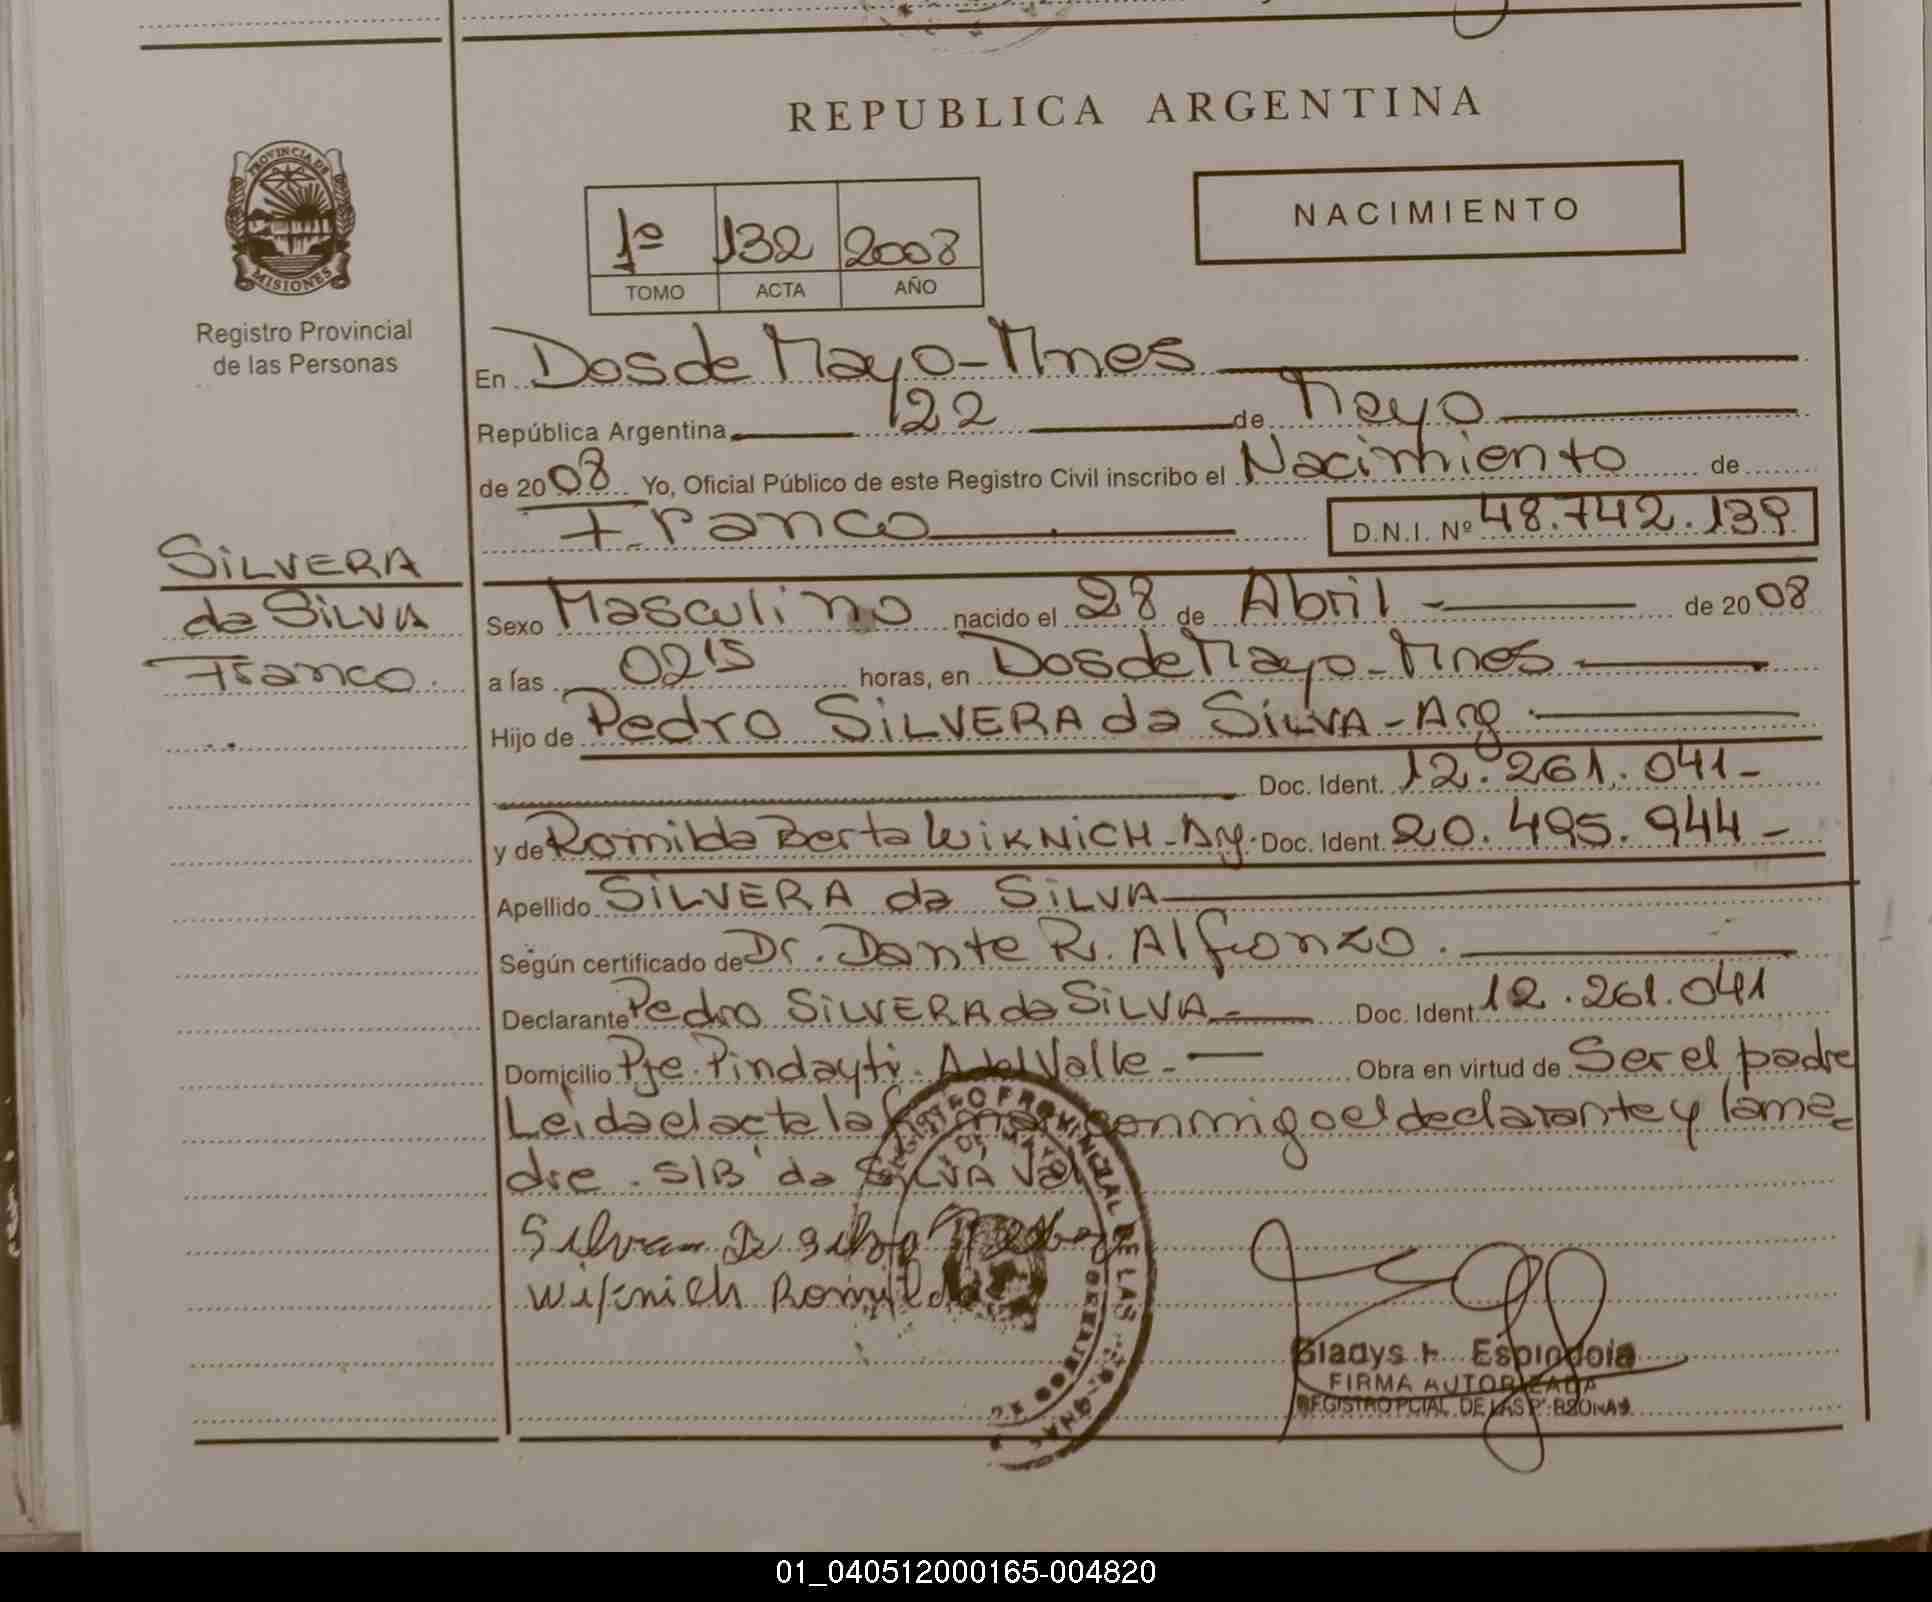 REPUBLICA ARGENTINA
PROVINCIA DE
MISIONES
Registro Provincial
de las Personas
NACIMIENTO
1º 132 2008
TOMO ACTA AÑO
En Dos de Mayo - Mnes
República Argentina 22 de Mayo
de 2008 Yo, Oficial Público de este Registro Civil inscribo el Nacimiento de
Franco D.N.I. Nº 48.742.139
SILVERA
da SILVA
Franco.
Sexo Masculino nacido el 28 de Abril - de 2008
a las 0215 horas, en Dos de Mayo - Mnes
Hijo de Pedro SILVERA da SILVA - Arg.
Doc. Ident. 12.261.041-
y de Romilda Berta WIKNICH - Arg. Doc. Ident. 20.495.944-
Apellido SILVERA da SILVA
Según certificado de Dr. Dante R. Alfonzo.
Declarante Pedro SILVERA da SILVA - Doc. Ident. 12.261.041
Domicilio Pje. Pindayti. A del Valle - Obra en virtud de Ser el padre
Leida el acta la firman conmigo el declarante y la ma-
dre. S/B da SILVA Val
Silvera Da Silva
Wiknich Romilda
REGISTRO PROVINCIAL DE LAS
Gladys Espindola
FIRMA AUTORIZADA
REGISTRO PCIAL. DE LAS PERSONAS
01_040512000165-004820